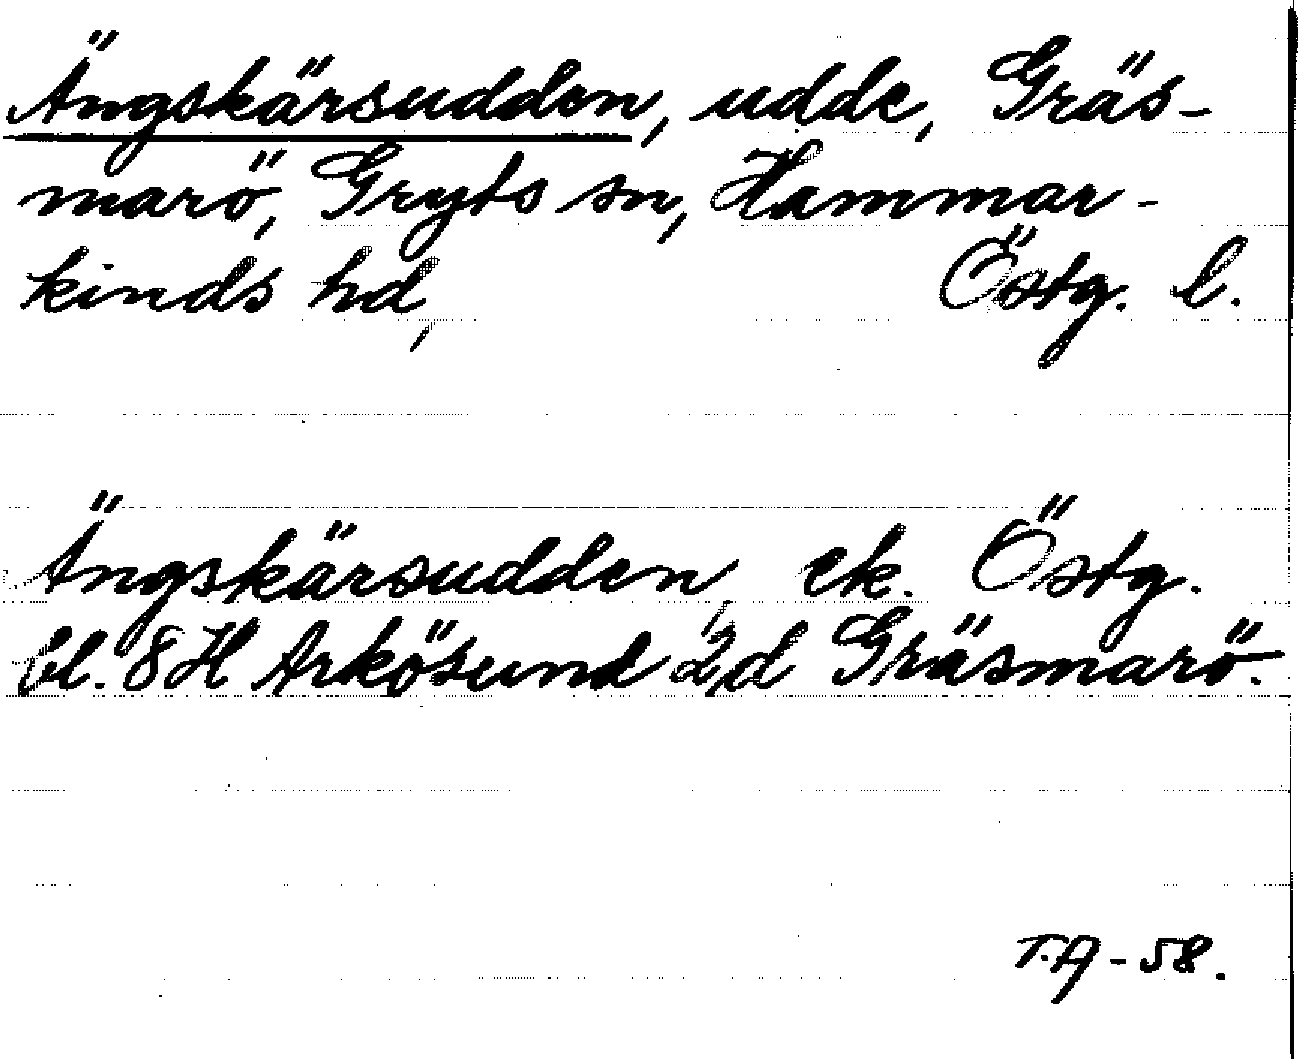 Ängskärsudden, udde, Gräs-
marö, Gryts sn, Hammar-
kinds hd, Östg. l.
Ängskärsudden, ek. Östg.
bl. 8H Arkösund 2d Gräsmarö.
T.A-58.